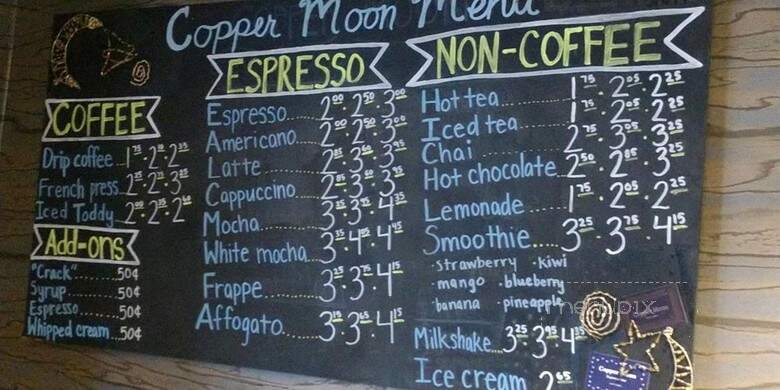 Copper Moon Menu
COFFEE
Drip coffee
French press
Iced Toddy
Add-ons
"Crack" ........ 50¢
Syrup ........ 50¢
Espresso ........ 50¢
Whipped cream ... 50¢
ESPRESSO
Espresso 2.00 · 2.50 · 3.00
Americano 2.00 · 2.50 · 3.00
Latte 2.85 · 3.60 · 3.95
Cappuccino 2.85 · 3.60 · 3.95
Mocha
White mocha
Frappe 3.25 · 3.75 · 4.15
Affogato 3.15 · 3.65 · 4.15
NON-COFFEE
Hot tea 1.75 · 2.05 · 2.25
Iced tea 1.75 · 2.05 · 2.25
Chai 2.75 · 3.05 · 3.25
Hot chocolate 2.50 · 2.85 · 3.25
Lemonade 1.75 · 2.05 · 2.25
Smoothie 3.25 · 3.75 · 4.15
· strawberry · kiwi
· mango · blueberry
· banana · pineapple
Milkshake 3.25 3.95 4.35
Ice cream 2.65
menupix
Copper Moon